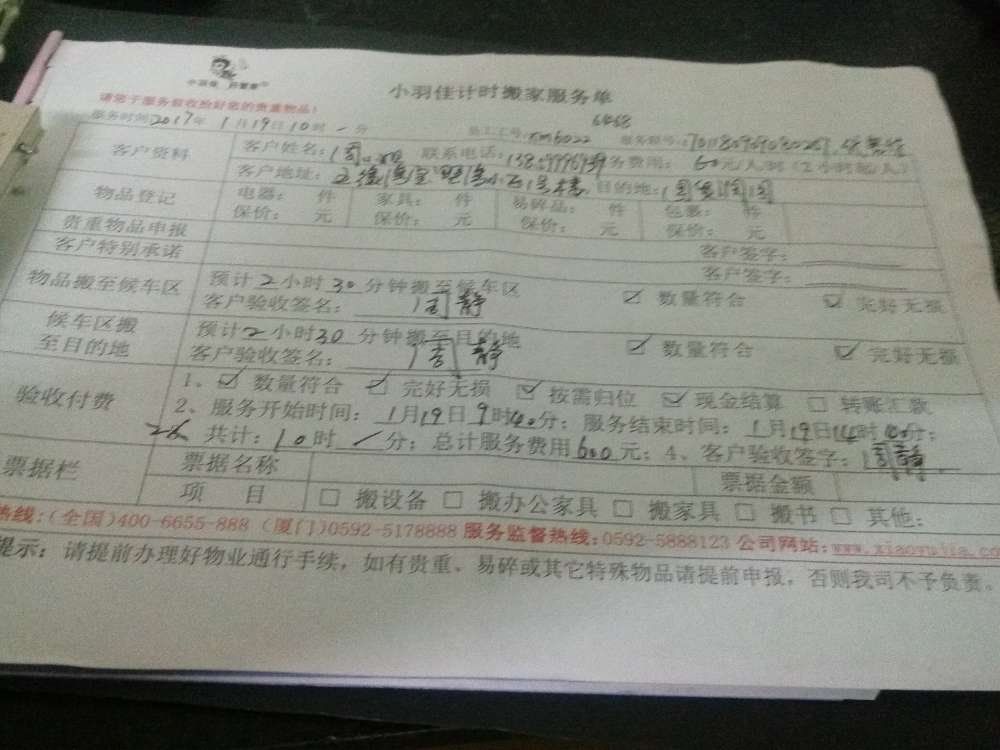 小羽佳 好管家
小羽佳计时搬家服务单
请您于服务前收捡好您的贵重物品!
6468
服务时间:2017年1月19日10时-分 员工工号:xm6022
客户资料 客户姓名: 联系电话: 服务费用:60元/人·时(2小时起/人)
客户地址: 目的地:
物品登记 电器: 件 家具: 件 易碎品: 件 包裹: 件
保价: 元 保价: 元 保价: 元 保价: 元
贵重物品申报 客户签字:
客户特别承诺 客户签字:
物品搬至候车区 预计2小时30分钟搬至候车区 ☑ 数量符合 ☑ 完好无损
客户验收签名:周静
候车区搬至目的地 预计2小时30分钟搬至目的地 ☑ 数量符合 ☑ 完好无损
客户验收签名:周静
验收付费 1、☑ 数量符合 ☑ 完好无损 ☑ 按需归位 ☑ 现金结算 □ 转账汇款
2、服务开始时间:1月19日9时40分;服务结束时间:1月19日14时40分;
共计:10时/分;总计服务费用600元;4、客户验收签字:周静
票据栏 票据名称 票据金额
项 目 □ 搬设备 □ 搬办公家具 □ 搬家具 □ 搬书 □ 其他:
热线:(全国)400-6655-888 (厦门)0592-5178888 服务监督热线:0592-5888123 公司网站:www.xiaoyujia.co
提示:请提前办理好物业通行手续,如有贵重、易碎或其它特殊物品请提前申报,否则我司不予负责。